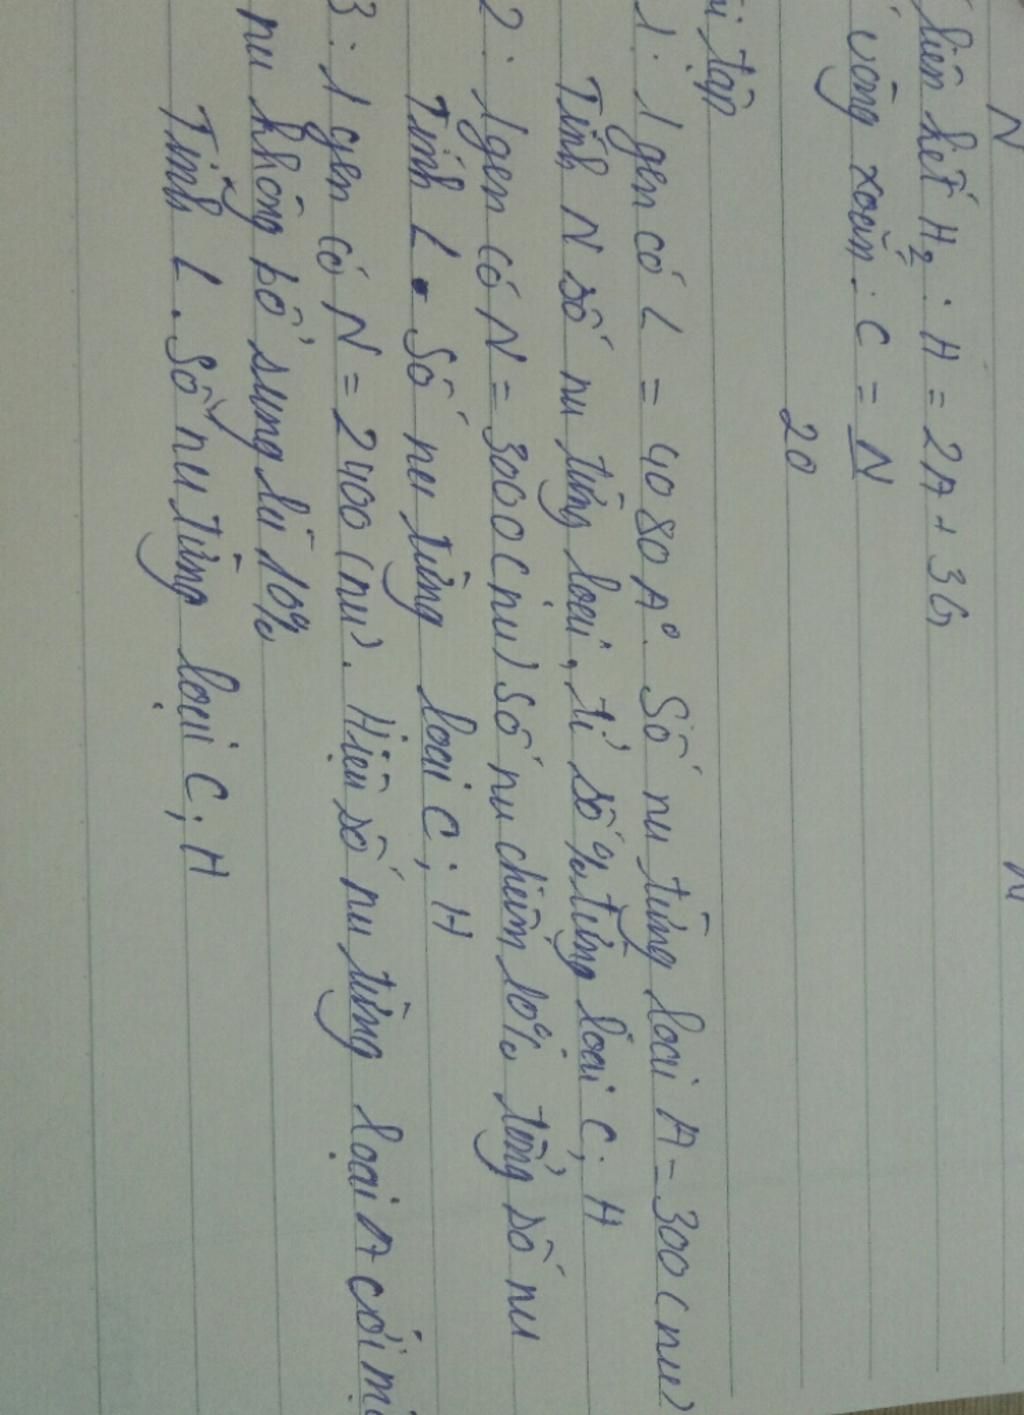 N
liên kết H2: H = 2A + 3G
vòng xoắn: C = N
20
tập
1: 1 gen có L = 4080A°. Số nu từng loại A = 300 (nu)
Tính N số nu từng loại, tỉ số % từng loại C; H
2: 1 gen có N = 3000 (nu) số nu chiếm 10% tổng số nu
Tính L. Số nu từng loại C; H
3: 1 gen có N = 2400 (nu). Hiệu số nu từng loại A với
nu không bổ sung là 10%
Tính L. Số nu từng loại C; H